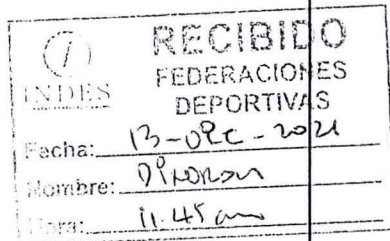 RECIBIDO
INDES
FEDERACIONES
DEPORTIVAS
Fecha: 13-DEC-2021
Nombre:
Hora: 11:45 am